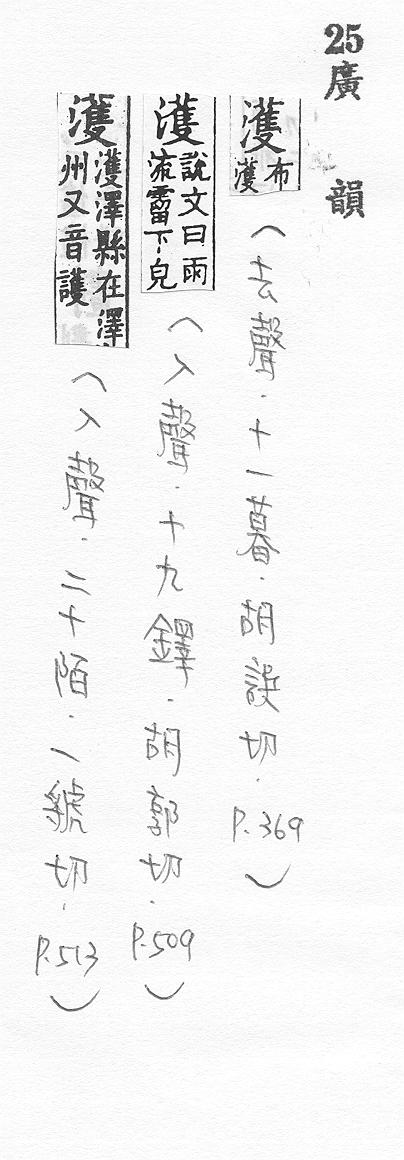 25廣韻
濩 布濩
(去聲．十一暮．胡誤切．P.369)
濩 說文曰雨流霤下皃
(入聲．十九鐸．胡郭切．P.509)
濩 濩澤縣在澤州又音護
(入聲．二十陌．一虢切．P.513)